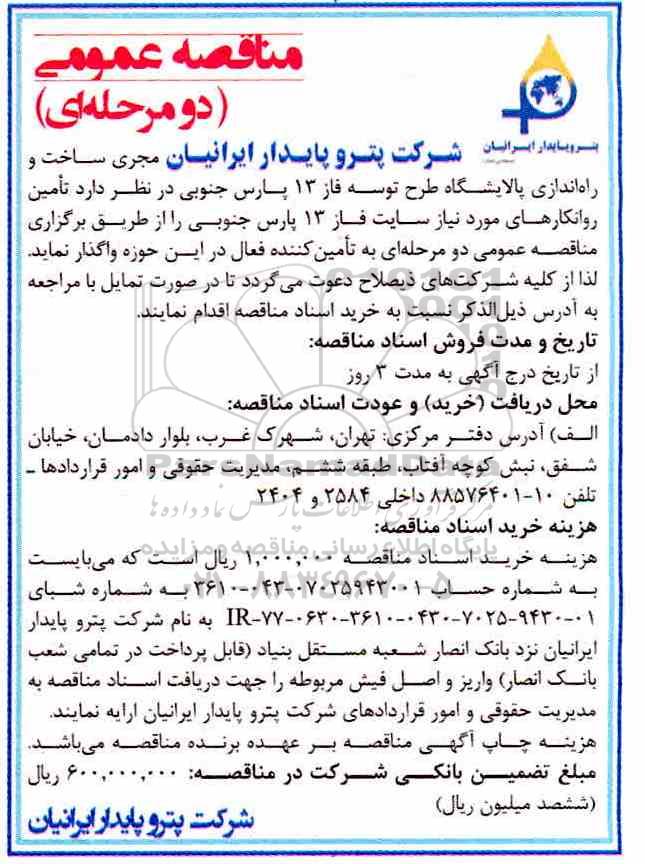 مناقصه عمومی
(دو مرحله‌ای)
پترو پایدار ایرانیان
شرکت پترو پایدار ایرانیان مجری ساخت و
راه‌اندازی پالایشگاه طرح توسعه فاز ۱۳ پارس جنوبی در نظر دارد تأمین
روانکارهای مورد نیاز سایت فاز ۱۳ پارس جنوبی را از طریق برگزاری
مناقصه عمومی دو مرحله‌ای به تأمین‌کننده فعال در این حوزه واگذار نماید.
لذا از کلیه شرکت‌های ذیصلاح دعوت می‌گردد تا در صورت تمایل با مراجعه
به آدرس ذیل‌الذکر نسبت به خرید اسناد مناقصه اقدام نمایند.
تاریخ و مدت فروش اسناد مناقصه:
از تاریخ درج آگهی به مدت ۳ روز
محل دریافت (خرید) و عودت اسناد مناقصه:
الف) آدرس دفتر مرکزی: تهران، شهرک غرب، بلوار دادمان، خیابان
شفق، نبش کوچه آفتاب، طبقه ششم، مدیریت حقوقی و امور قراردادها ـ
تلفن ۱۰-۸۸۵۷۶۴۰۱ داخلی ۲۵۸۴ و ۲۴۰۴
هزینه خرید اسناد مناقصه:
هزینه خرید اسناد مناقصه ۱,۰۰۰,۰۰۰ ریال است که می‌بایست
به شماره حساب ۳۶۱۰-۰۴۳-۰۷۰۲۵۹۴۳۰۰۱ به شماره شبای
IR-۷۷-۰۶۳۰-۳۶۱۰-۰۴۳۰-۷۰۲۵-۹۴۳۰-۰۱ به نام شرکت پترو پایدار
ایرانیان نزد بانک انصار شعبه مستقل بنیاد (قابل پرداخت در تمامی شعب
بانک انصار) واریز و اصل فیش مربوطه را جهت دریافت اسناد مناقصه به
مدیریت حقوقی و امور قراردادهای شرکت پترو پایدار ایرانیان ارایه نمایند.
هزینه چاپ آگهی مناقصه بر عهده برنده مناقصه می‌باشد.
مبلغ تضمین بانکی شرکت در مناقصه: ۶۰۰,۰۰۰,۰۰۰ ریال
(ششصد میلیون ریال)
شرکت پترو پایدار ایرانیان
ParsNamadData
مرکز فرآوری اطلاعات پارس نماد داده‌ها
پایگاه اطلاع رسانی مناقصه و مزایده
۰۲۱-۸۸۳۴۹۶۷۰-۵